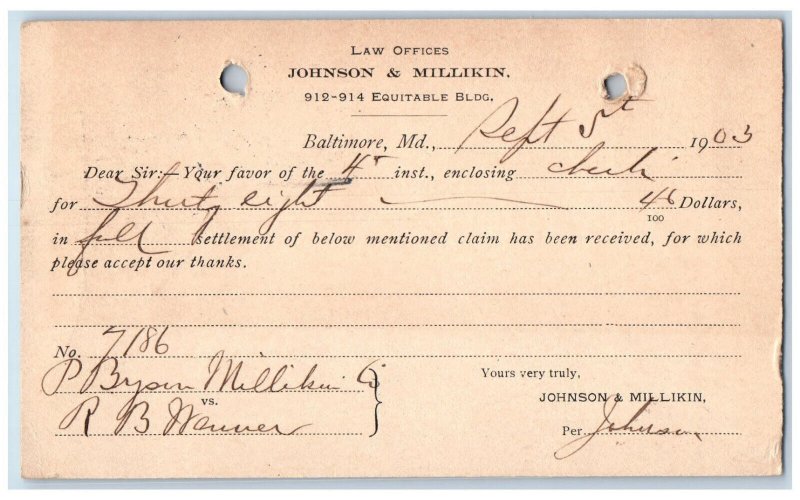 LAW OFFICES
JOHNSON & MILLIKIN,
912-914 EQUITABLE BLDG.
Baltimore, Md., Sept 5th 1903
Dear Sir:—Your favor of the 4th inst., enclosing check
for Thirty eight 40/100 Dollars,
in full settlement of below mentioned claim has been received, for which
please accept our thanks.
No. 7186
P Bryson Millikin Co
vs.
R B Wanner
Yours very truly,
JOHNSON & MILLIKIN,
Per Johnson